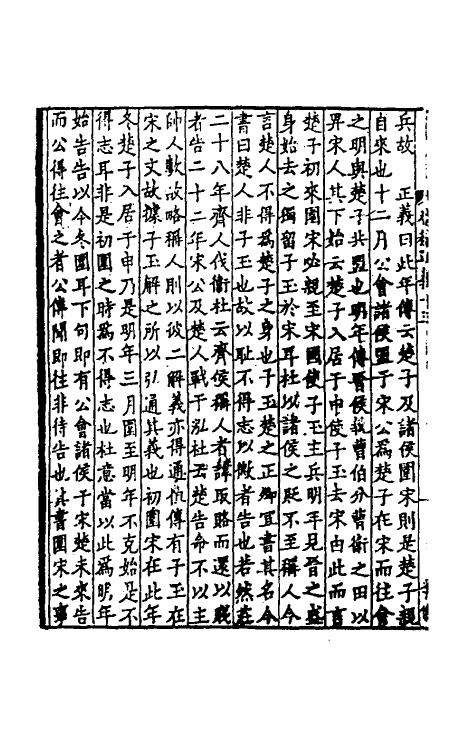 兵故　正義曰此年傳云楚子及諸侯圍宋則是楚子親
自來也十二月公會諸侯盟于宋公爲楚子在宋而往會
之明與楚子共盟也明年傳晉侯執曹伯分曹衛之田以
畀宋人其下始云楚子入居于申使子玉去宋由此而言
楚子初來圍宋必親至宋國使子玉主兵明年見晉之盛
身始去之獨留子玉於宋耳杜以諸侯之貶不至稱人今
言楚人不得爲楚子之身也子玉楚之正卿宜書其名今
書曰楚人非子玉也故以恥不得志以微者告也若然在
二十八年齊人伐衛杜云齊侯稱人者諱取賂而還以賤
者告二十二年宋公及楚人戰于泓杜云楚告命不以主
帥人數故略稱人則以彼二解義亦得通但傳有子玉在
宋之文故據子玉解之所以引通其義也初圍宋在此年
冬楚子入居于申乃是明年三月圍至明年不克始是不
得志耳非是初圍之時爲不得志也杜意當以此爲明年
始告告以今冬圍耳下句即有公會諸侯于宋楚未來告
而公得往會之者公傳聞即往非待告也其書圍宋之事